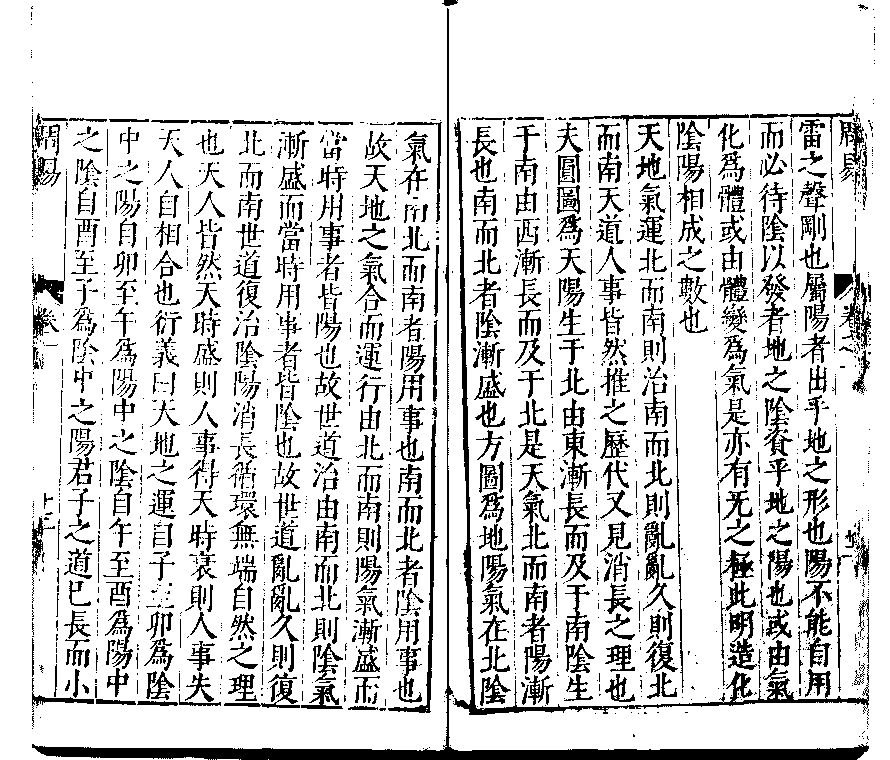 周易
雷之聲剛也屬陽者出乎地之形也陽不能自用
而必待陰以發者地之陰資乎地之陽也或由氣
化爲體或由體變爲氣是亦有无之極此明造化
陰陽相成之數也
天地氣運北而南則治南而北則亂亂久則復北
而南天道人事皆然推之歷代又見消長之理也
夫圓圖爲天陽生于北由東漸長而及于南陰生
于南由西漸長而及于北是天氣北而南者陽漸
長也南而北者陰漸盛也方圖爲地陽氣在北陰
氣在南北而南者陽用事也南而北者陰用事也
故天地之氣合而運行由北而南則陽氣漸盛而
當時用事者皆陽也故世道治由南而北則陰氣
漸盛而當時用事者皆陰也故世道亂亂久則復
北而南世道復治陰陽消長循環無端自然之理
也天人皆然天時盛則人事得天時衰則人事失
天人自相合也衍義曰天地之運自子至卯爲陰
中之陽自卯至午爲陽中之陰自午至酉爲陽中
之陰自酉至子爲陰中之陽君子之道已長而小
周易
卷一